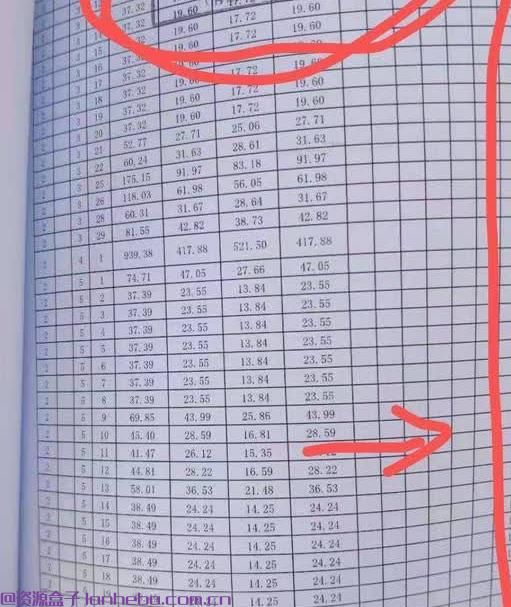 2 3 37.32 19.60 17.72 19.60
2 3 14 37.32 19.60 17.72 19.60
2 3 15 37.32 19.60 17.72 19.60
2 3 16 37.32 19.60 17.72 19.60
2 3 17 37.32 19.60 17.72 19.60
2 3 18 37.32 19.60 17.72 19.60
2 3 19 37.32 19.60 17.72 19.60
2 3 20 37.32 19.60 17.72 19.60
2 3 21 52.77 27.71 25.06 27.71
2 3 22 60.24 31.63 28.61 31.63
2 3 25 175.15 91.97 83.18 91.97
2 3 26 118.03 61.98 56.05 61.98
2 3 28 60.31 31.67 28.64 31.67
2 3 29 81.55 42.82 38.73 42.82
2 4 1 939.38 417.88 521.50 417.88
2 5 1 74.71 47.05 27.66 47.05
2 5 2 37.39 23.55 13.84 23.55
2 5 3 37.39 23.55 13.84 23.55
2 5 4 37.39 23.55 13.84 23.55
2 5 5 37.39 23.55 13.84 23.55
2 5 6 37.39 23.55 13.84 23.55
2 5 7 37.39 23.55 13.84 23.55
2 5 8 37.39 23.55 13.84 23.55
2 5 9 69.85 43.99 25.86 43.99
2 5 10 45.40 28.59 16.81 28.59
2 5 11 41.47 26.12 15.35
2 5 12 44.81 28.22 16.59 28.22
2 5 13 58.01 36.53 21.48 36.53
2 5 14 38.49 24.24 14.25 24.24
2 5 15 38.49 24.24 14.25 24.24
2 5 16 38.49 24.24 14.25 24.24
2 5 17 38.49 24.24 14.25 24.24
2 5 18 38.49 24.24 14.25 24.24
19 14.25 24.24
@资源盒子lanheba.com.cn